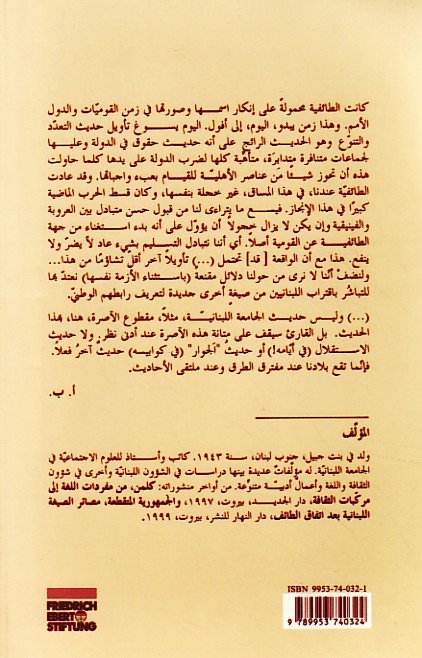 كانت الطائفية محمولةً على إنكار اسمها وصورتها في زمن القوميّات والدول
الأمم. وهذا زمن يبدو، اليوم، إلى أفول. اليوم يسوغ تأويل حديث التعدّد
والتنوّع وهو الحديث الرائج على أنه حديث حقوق في الدولة وعليها
لجماعات متنافرة متدابرة، متأهّبة كلها لضرب الدولة على يدها كلما حاولت
هذه أن تحوز شيئاً من عناصر الأهليّة للقيام بعبء واجباتها. وقد عادت
الطائفيّة عندنا، في هذا المساق، غير خجلة بنفسها، وكان قسط الحرب الماضية
كبيراً في هذا الإنجاز. فيسع ما يتراءى لنا من قبول حسن متبادل بين العروبة
والفينيقية وإن يكن لا يزال خجولاً أن يؤوّل على أنه بدء استغناء من جهة
الطائفيين عن القومية أصلاً. أي أننا نتبادل التسليم بشيء عاد لا يضر ولا
ينفع. هذا مع أن الواقعة [قد] تحتمل (...) تأويلاً آخر أقل تشاؤمًا من هذا...
ولنضفْ أنّنا لا نرى من حولنا دلائل مقنعة (باستثناء الأزمة نفسها) نعتدّ بها
للتباشُر باقتراب اللبنانيين من صيغةٍ أخرى جديدة لتعريف رابطهم الوطنيّ.
(...) وليس حديث الجامعة اللبنانيّة، مثلاً، مقطوع الآصرة، هنا، بهذا
الحديث. بل القارئ سيقف على متانة هذه الآصرة عند أدنى نظر. ولا حديث
الاستقلال (في أيّامه!) أو حديثُ "الجوار" (في كوابيسه) حديثٌ آخرُ فعلاً.
فإنّما تقع بلادنا عند مفترق الطرق وعند ملتقى الأحاديث.
أ. ب.
المؤلّف
ولد في بنت جبيل، جنوب لبنان، سنة ١٩٤٣. كاتب وأستاذ للعلوم الاجتماعية في
الجامعة اللبنانيّة. له مؤلّفات عديدة بينها دراسات في الشؤون اللبنانيّة وأخرى في شؤون
الثقافة واللغة وأعمالٌ أدبيّة متنوّعة. من أواخر منشوراته: كلمن، من مفردات اللغة إلى
مركّبات الثقافة، دار الجديد، بيروت، ١٩٩٧، والجمهورية المتقطعة، مصائر الصيغة
اللبنانية بعد اتفاق الطائف، دار النهار للنشر، بيروت، ١٩٩٩.
ISBN 9953-74-032-1
9 789953 740324
FRIEDRICH
EBERT
STIFTUNG